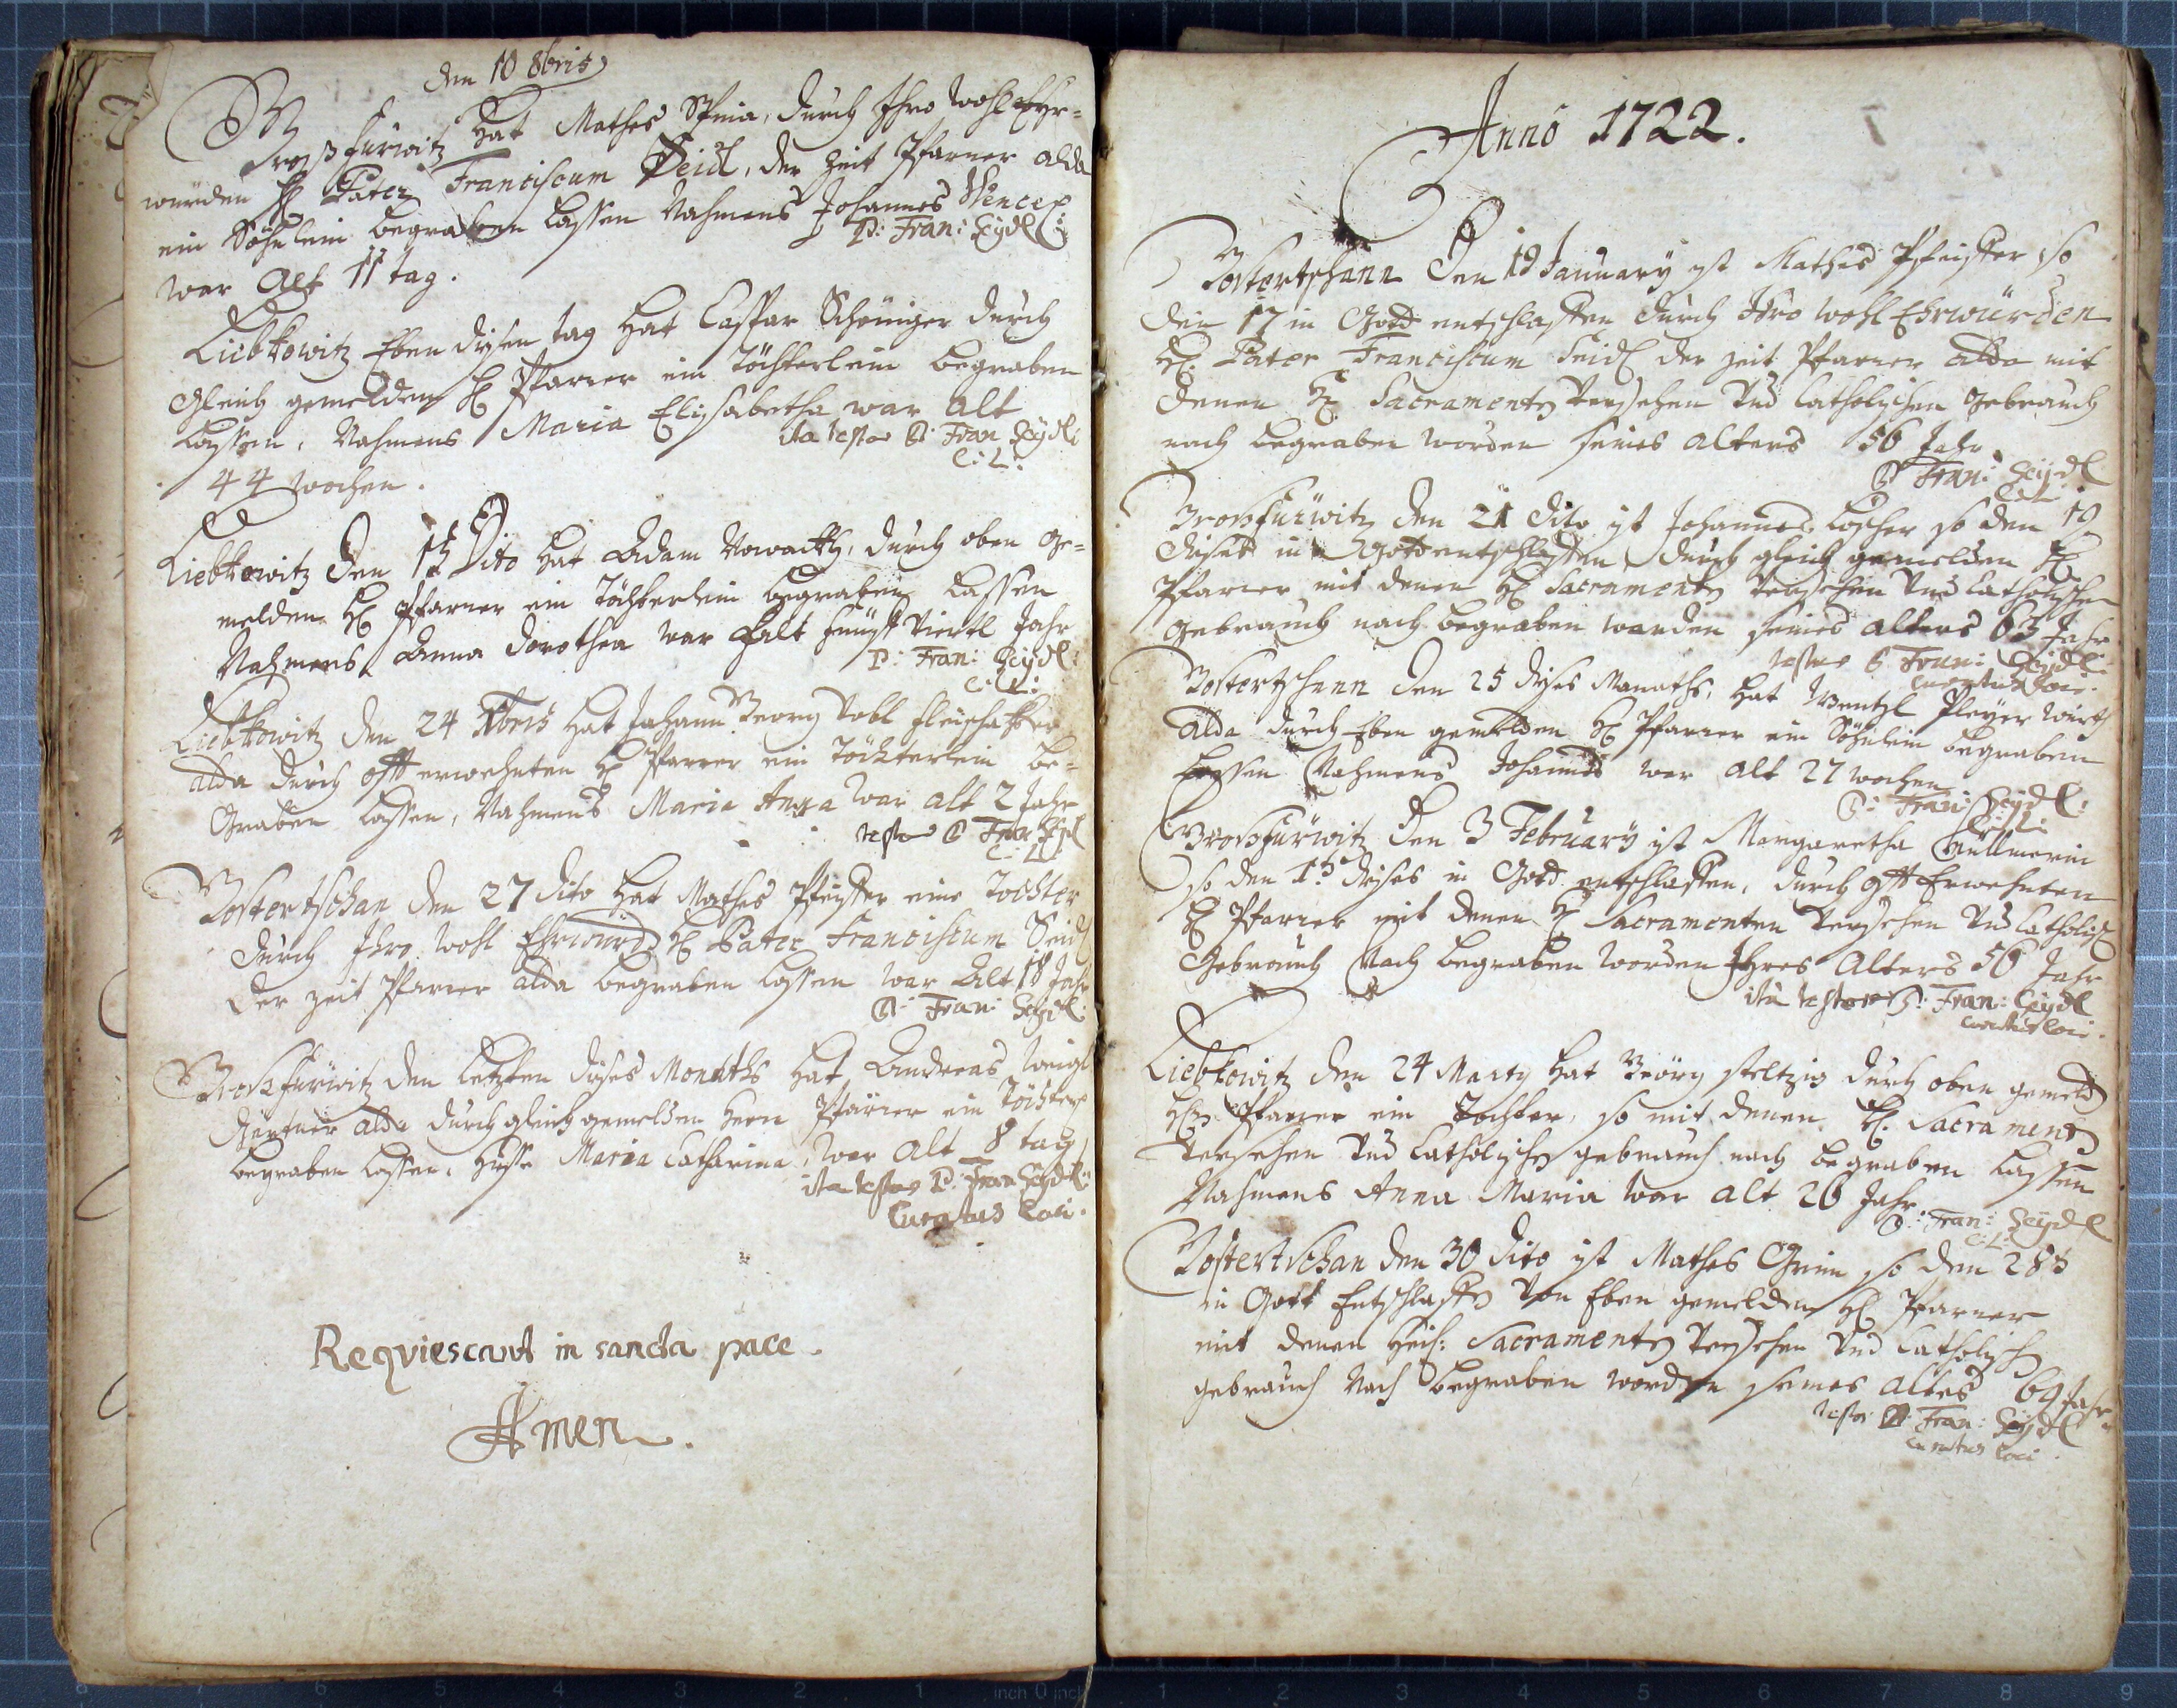 den 10 8bris
Großfürwitz hat Mathes Spina, durch Ihro wohl Ehr=
würden H Pater Franciscum Seidl, der Zeit Pfarrer alda
ein Söhnlein begraben lassen Nahmens Johannes Wencel
war alt 11 tag.
P: Fran: Seydl
Liebkowitz Eben diesen tag hat Caspar Scheiniger durch
gleich gemelden H Pfarrer ein Töchterlein begraben
lassen, Nahmens Maria Elisabetha war alt
44 wochen.
ita testor P: Fran Seydl
C: L:
Liebkowitz Den 15 Dito hat Adam Nowackh, durch oben ge=
melden H Pfarrer ein Töchterlein begraben lassen
Nahmens Anna Dorothea war Halt fünff Viertl Jahr
P: Fran: Seydl:
C: L:
Liebkowitz den 24 Xbris hat Johann Georg Tobl fleischakher
alda durch offt erwehnten H Pfarrer ein Töchterlein be=
graben lassen, Nahmens Maria Anna war alt 2 Jahr
testor P Fran Seydl
C: L:
Postertschan den 27 dito hat Mathes Pfeisser eine Tochter
durch Ihro wohl Ehrwürd H Pater Franciscum Seidl
der zeit Pfarrer alda begraben lassen war Alt 18 Jahr
P: Fran: Seydl:
Großfürwitz den letzten dises Monaths hat Andreas Weigl
Gärtner alda durch gleich gemelden Herrn Pfarrer ein Töchterl
begraben lassen, hiesse Maria Catharina, war alt 8 tag
ita testor P: Fran Seydl:
Curatus Loci.
Reqviescant in sancta pace.
Amen.
Anno 1722.
Postertschann Den 19 January ist Mathes Pfeisser so
den 17 in Gott entschlaffen durch Ihro wohl Ehrwürden
H: Pater Franciscum Seidl der zeit Pfarrer alda mit
denen H: Sacramenten versehen Und Catholischen gebrauch
nach begraben worden seines alters 56 Jahr
P Fran: Seydl
C: L:
Großfürwitz den 21 dito ist Johannes Loscher so den 19
dises in Gott entschlaffen durch gleich gemelden H
Pfarrer mit denen H: Sacramenten versehen Und Catholischen
gebrauch nach begraben warden seines alters 63 Jahr
testor P Fran: Seydl
Curatus Loci.
Postertschann den 25 dises Monaths, hat Wentzl Pleyer würth
alda durch Eben gemelden H Pfarrer ein Söhnlein begraben
lassen Nahmens Johannes war alt 27 wochen
P: Fran: Seydl:
C: L:
Großfürwitz Den 3 February ist Margaretha Müllnerin
so den 1t dises in Gott entschlaffen, durch offt Erwehnten
H Pfarrer mit denen H: Sacramenten versehen Und Catholisch
Gebrauch Nach begraben worden Ihres Alters 56 Jahr
ita testor P: Fran: Seydl
Curatus Loci.
Liebkowitz den 24 Marty hat Geörg steltzig durch oben gemeld
H Pfarrer ein Tochter, so mit denen H: Sacrament
versehen Und Catholischen gebrauch nach begraben lassen
Nahmens Anna Maria war alt 26 Jahr
P: Fran: Seydl
C: L:
Postertschan den 30 dito ist Mathes Grim so den 28t
in Gott Entschlaffen Von Eben gemelden H Pfarrer
mit denen Heil: Sacramenten versehen Und Catholisch
gebrauch Nach begraben worden seines altes 69 Jahr
testor P: Fran: Seydl
Curatus Loci.